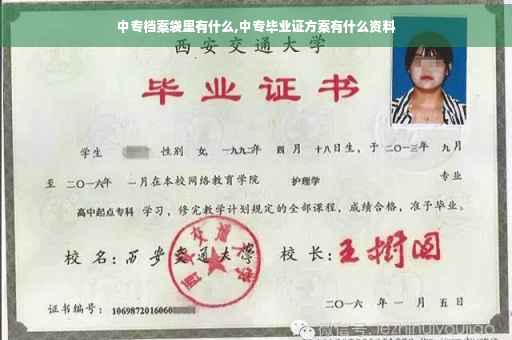 中专档案袋里有什么,中专毕业证方案有什么资料
西安交通大学
毕业证书
学生 性别 女, 一九九二年 四 月 十八日生, 于 二〇一三年 九月
至 二〇一六年 一月在本校网络教育学院 护理学 专业
高中起点专科 学习, 修完教学计划规定的全部课程, 成绩合格, 准予毕业。
校 名: 西安交通大学 校 长: 王树国
西安交通大学
证书编号: 1069872016060
二〇一六 年 一 月 五 日
微信号: lezhihuiyoujiao